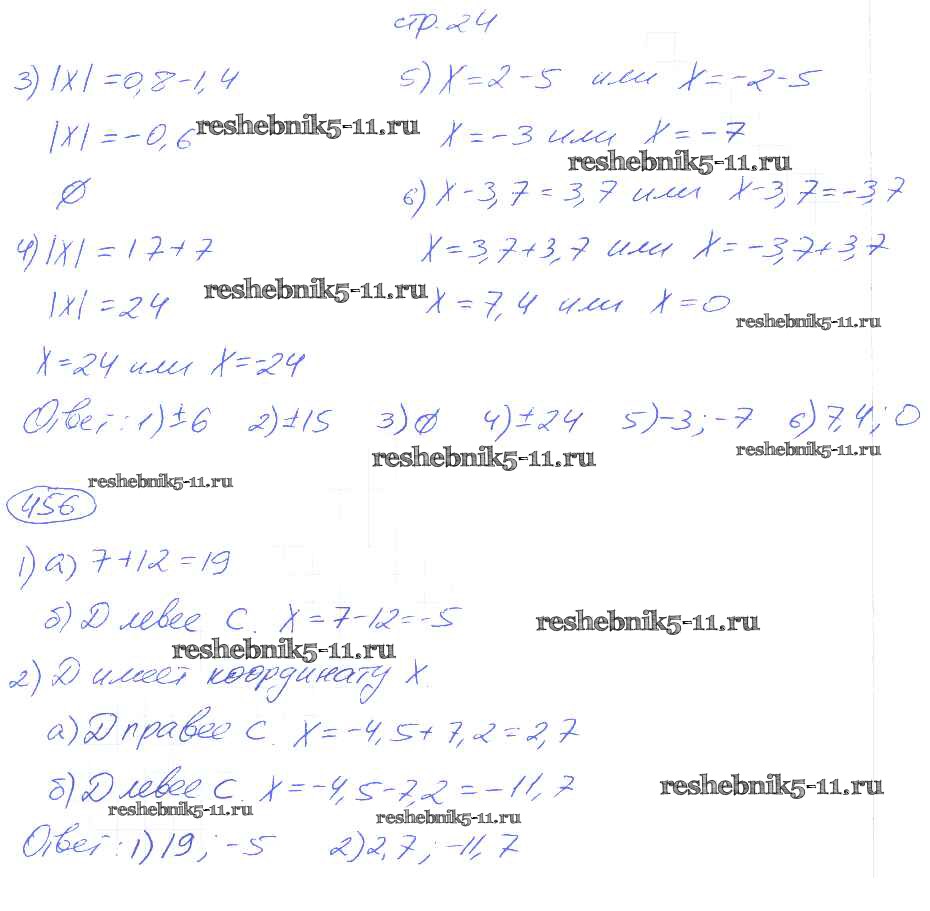 стр. 24
3) |x| = 0,8 - 1,4
|x| = -0,6
∅
4) |x| = 17 + 7
|x| = 24
x = 24 или x = -24
5) x = 2 - 5 или x = -2 - 5
x = -3 или x = -7
6) x - 3,7 = 3,7 или x - 3,7 = -3,7
x = 3,7 + 3,7 или x = -3,7 + 3,7
x = 7,4 или x = 0
Ответ: 1) ±6 2) ±15 3) ∅ 4) ±24 5) -3; -7 6) 7,4; 0
456
1) а) 7 + 12 = 19
б) D левее C. x = 7 - 12 = -5
2) D имеет координату x.
а) D правее C. x = -4,5 + 7,2 = 2,7
б) D левее C. x = -4,5 - 7,2 = -11,7
Ответ: 1) 19; -5 2) 2,7; -11,7
reshebnik5-11.ru
reshebnik5-11.ru
reshebnik5-11.ru
reshebnik5-11.ru
reshebnik5-11.ru
reshebnik5-11.ru
reshebnik5-11.ru
reshebnik5-11.ru
reshebnik5-11.ru
reshebnik5-11.ru
reshebnik5-11.ru
reshebnik5-11.ru